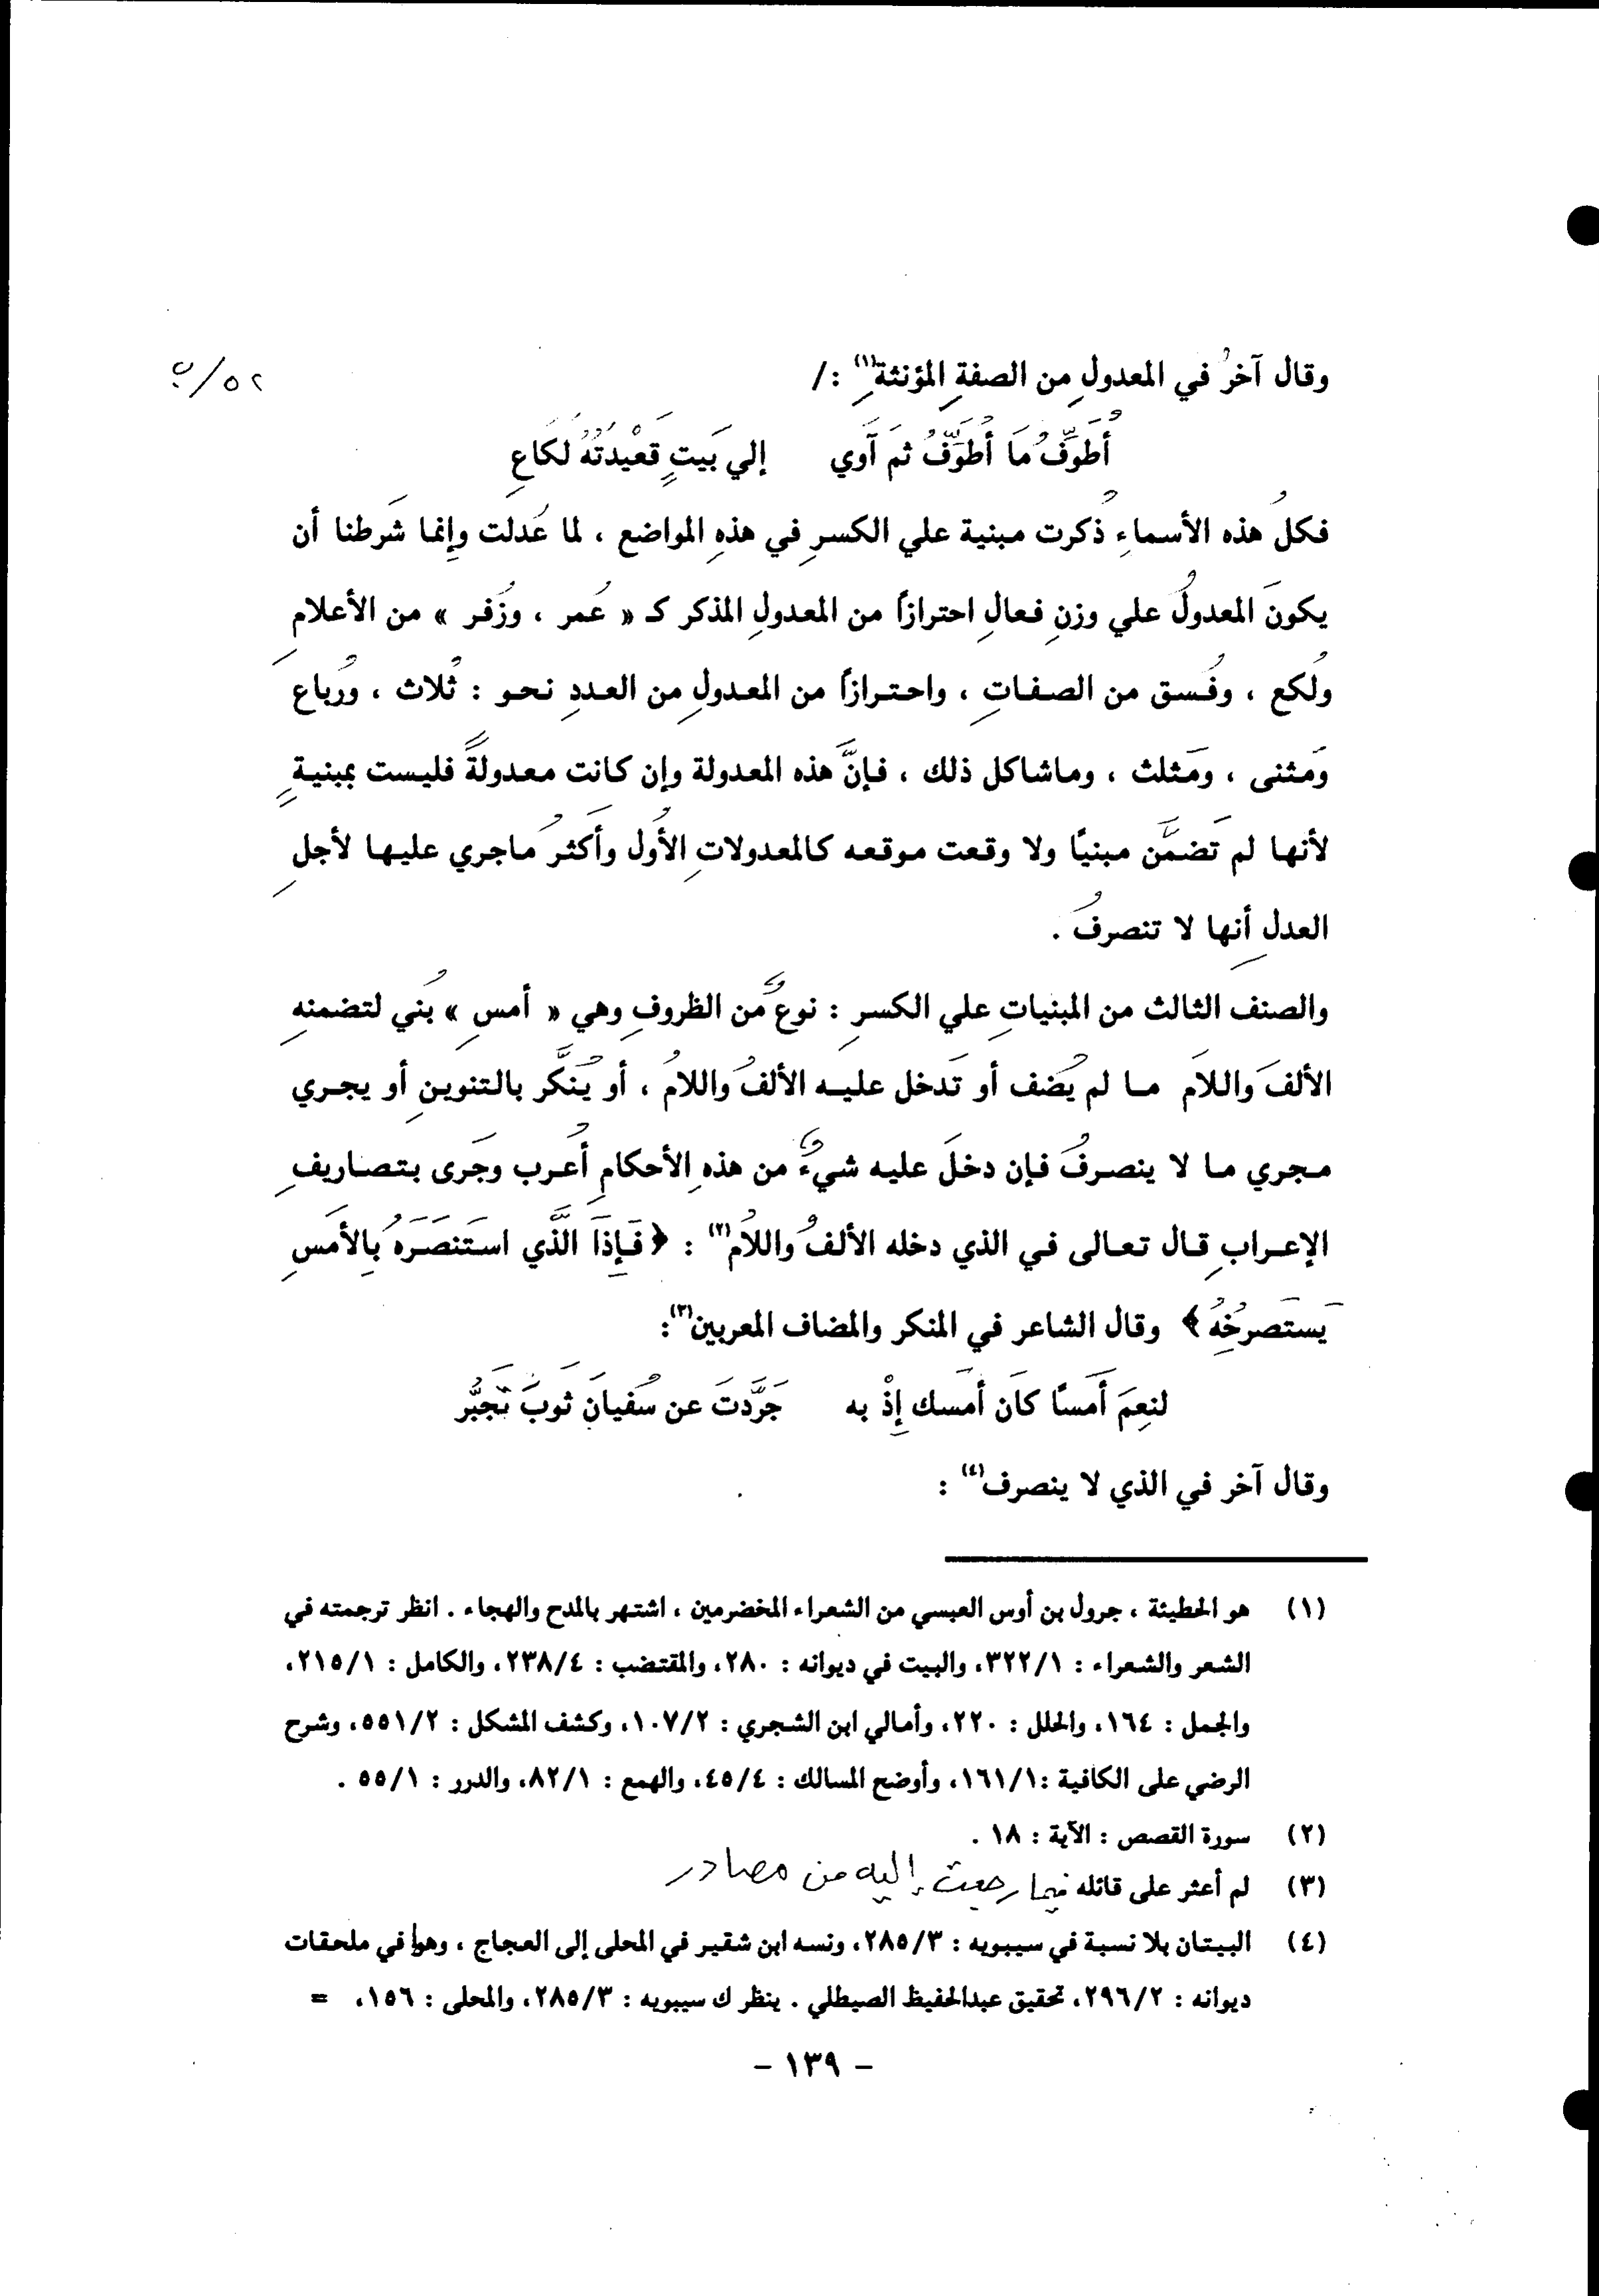 وقال آخرُ في المعدولِ من الصفةِ المؤنثةِ(١) : /
٥٢/ب
أُطَوِّفُ مَا أُطَوِّفُ ثمَ آوي إلي بَيتٍ قَعْيدَتُهُ لَكَاعِ
فكلُ هذه الأسماءِ ذُكرت مبنية علي الكسرِ في هذهِ المواضع ، لما عَدلت وإنما شَرطنا أن
يكونَ المعدولُ علي وزنِ فعالِ احترازاً من المعدولِ المذكر كـ « عُمر ، وزُفر » من الأعلامِ
ولُكع ، وفُسق من الصفاتِ ، واحترازاً من المعدولِ من العددِ نحو : ثُلاث ، ورُباع
وَمثنى ، ومَثلث ، وماشاكل ذلك ، فإنَّ هذه المعدولة وإن كانت معدولةً فليست بمبنيةٍ
لأنها لم تَضمَّن مبنيًا ولا وقعت موقعه كالمعدولاتِ الأُول وأَكثرُ ماجري عليها لأجلِ
العدلِ أنها لا تنصرفُ .
والصنف الثالث من المبنياتِ علي الكسرِ : نوعٌ من الظروفِ وهي « أمسِ » بُني لتضمنهِ
الألفَ واللاَم ما لم يُضف أو تَدخل عليه الألفُ واللامُ ، أو يُنَكَّر بالتنوينِ أو يجري
مجري ما لا ينصرفُ فإن دخلَ عليه شيءٌ من هذهِ الأحكامِ أُعرب وجَرى بتصاريفِ
الإعرابِ قال تعالى في الذي دخله الألفُ واللاُم(٢) : ﴿ فَإِذَا الَّذي استَنصَرَهُ بِالأَمسِ
يَستَصرخُِهُ ﴾ وقال الشاعر في المنكر والمضاف المعربين(٣):
لنِعِمَ أَمَسًا كاَن أمَسك إِذْ به جَرَّدتَ عن سُفيانَ ثَوبَ تَجَبُّر
وقال آخر في الذي لا ينصرف(٤) :
(١) هو الحطيئة ، جرول بن أوس العبسي من الشعراء المخضرمين ، اشتهر بالمدح والهجاء . انظر ترجمته في
الشعر والشعراء : ٣٢٢/١، والبيت في ديوانه : ٢٨٠، والمقتضب : ٢٣٨/٤، والكامل : ٢١٥/١،
والجمل : ١٦٤، والحلل : ٢٢٠، وأمالي ابن الشجري : ١٠٧/٢، وكشف المشكل : ٥٥١/٢، وشرح
الرضي على الكافية :١٦١/١، وأوضح المسالك : ٤٥/٤، والهمع : ٨٢/١، والدرر : ٥٥/١ .
(٢) سورة القصص : الآية : ١٨ .
(٣) لم أعثر على قائله فيما رجعت إليه من مصادر
(٤) البيتان بلا نسبة في سيبويه : ٢٨٥/٣، ونسه ابن شقير في المحلى إلى العجاج ، وهوا في ملحقات
ديوانه : ٢٩٦/٢، تحقيق عبدالحفيظ الصيطلي . ينظر ك سيبويه : ٢٨٥/٣، والمحلى : ١٥٦، =
- ١٣٩ -